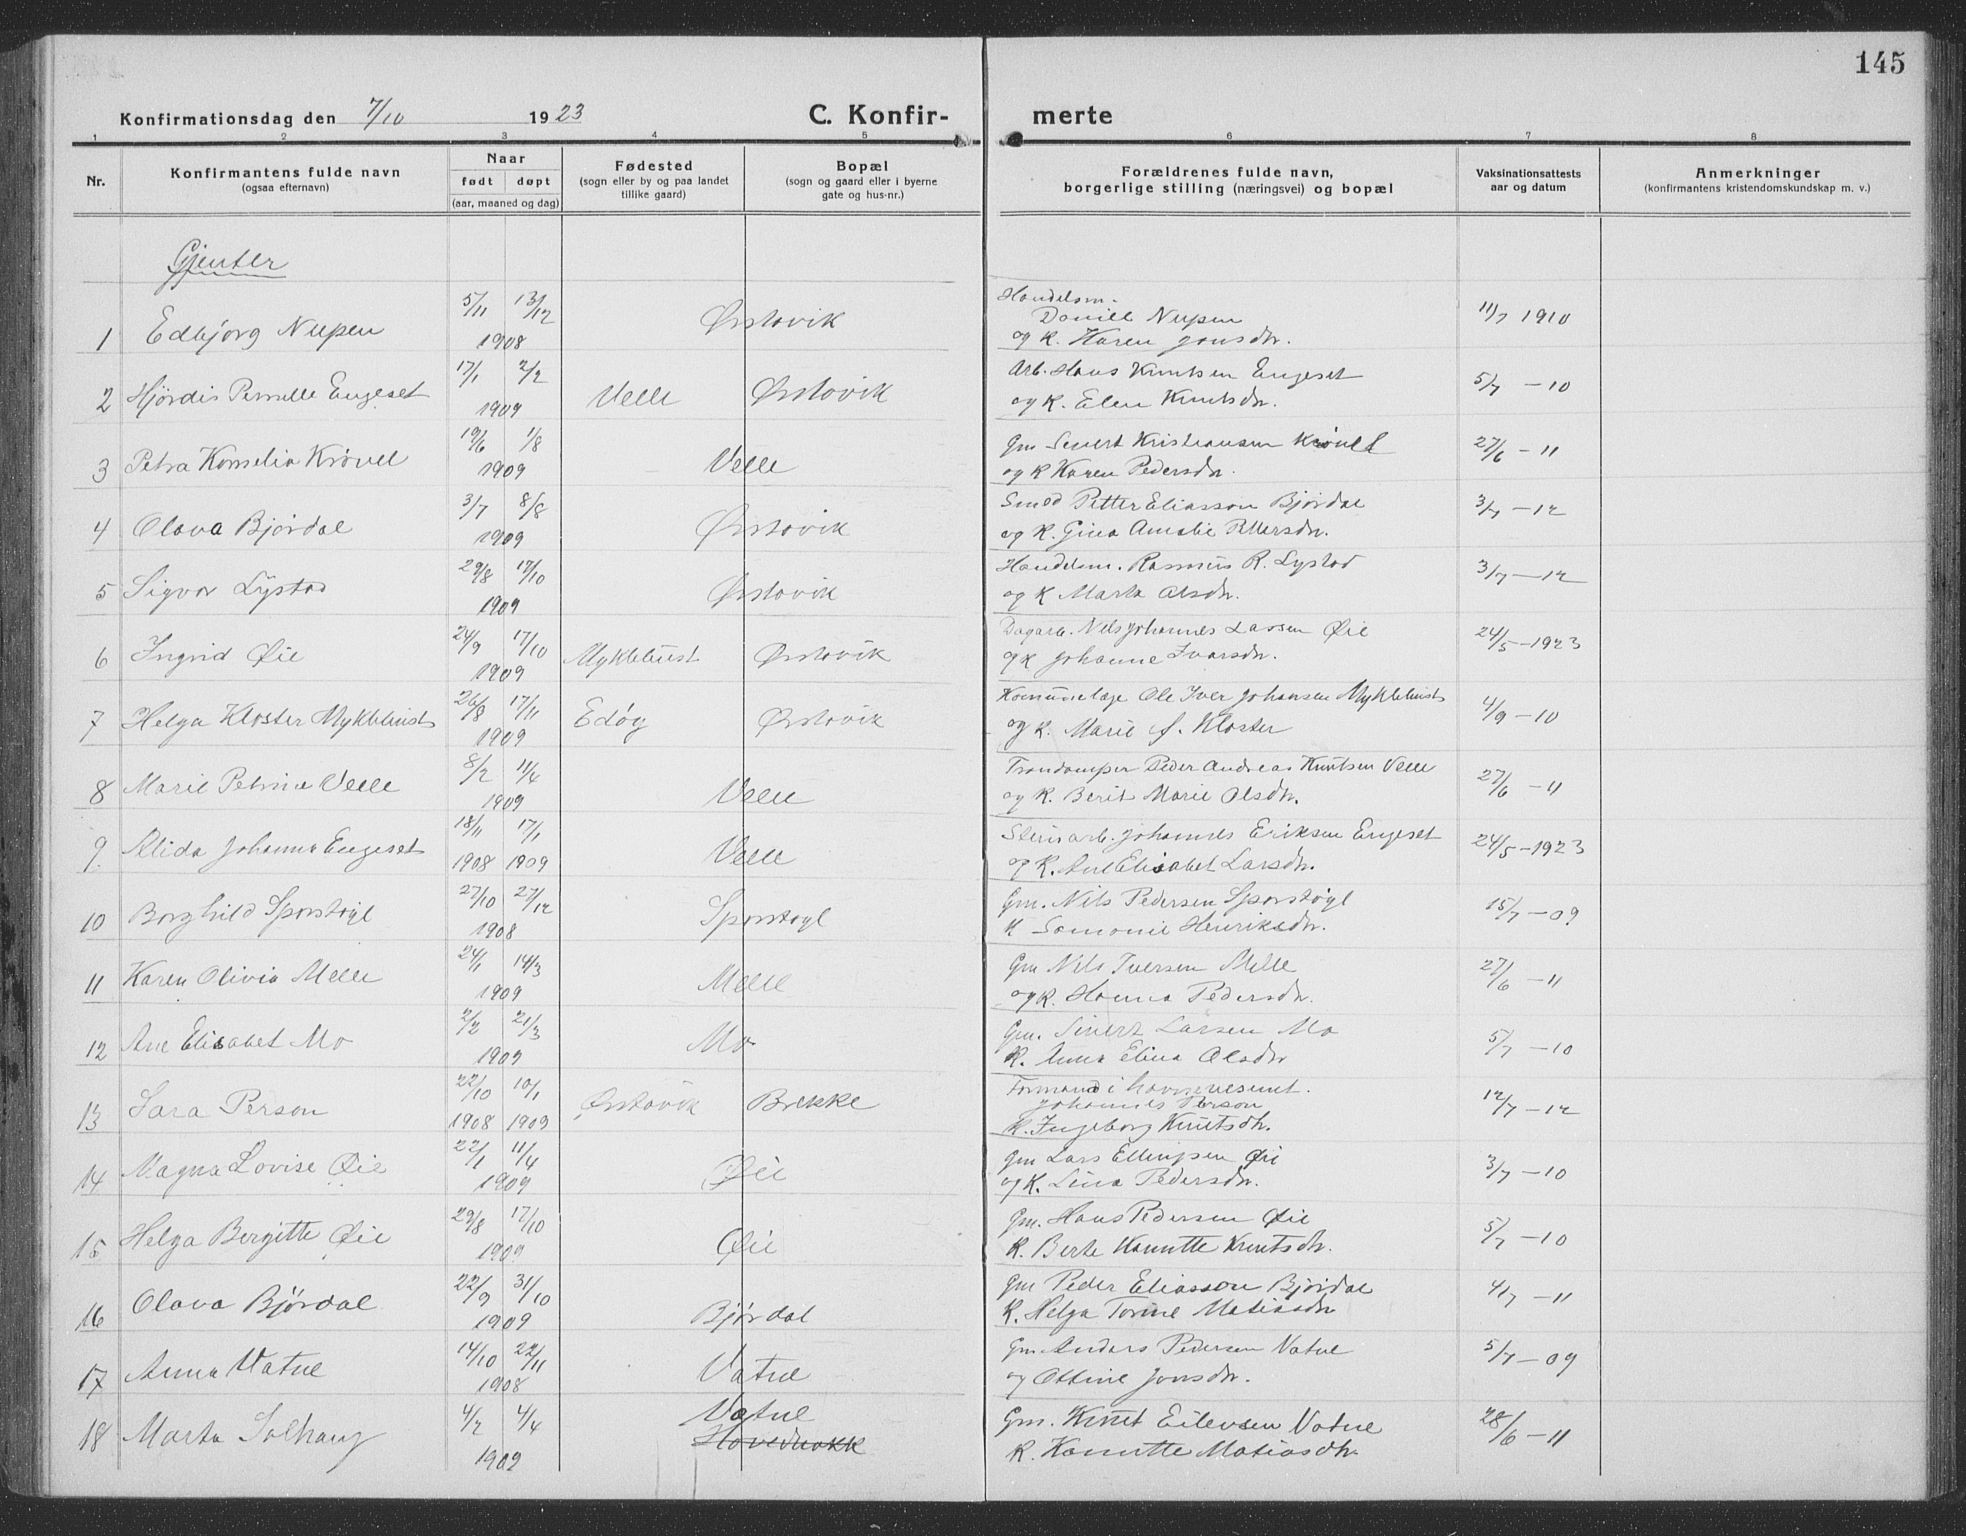 145
Konfirmationsdag den 7/10 1923 C. Konfir- merte
1 2 3 4 5 6 7 8
Nr.
Konfirmantens fulde navn
(ogsaa efternavn)
Naar
født døpt
(aar, maaned og dag)
Fødested
(sogn eller by og paa landet
tillike gaard)
Bopæl
(sogn og gaard eller i byerne
gate og hus-nr.)
Forældrenes fulde navn,
borgerlige stilling (næringsvei) og bopæl
Vaksinationsattests
aar og datum
Anmerkninger
(konfirmantens kristendomskundskap m. v.)
Gjenter
1 Edbjørg Nupen 5/11 13/12 1908 Ørstavik
Handelsm.
Daniel Nupen
og K. Karen Jonsdtr. 11/7 1910
2 Hjørdis Pernille Engeset 17/1 2/2 1909 Velle Ørstavik
Arb. Hans Knutsen Engeset
og K. Elen Knutsdtr. 5/7 - 10
3 Petra Kornelia Krøvel 19/6 1/8 1909 Velle
Gm Sivert Kristiansen Krøvel
og K Karen Pedersdtr. 27/6 - 11
4 Olava Bjørdal 3/7 8/8 1909 Ørstavik
Smed Petter Eliasson Bjørdal
og K. Gina Amalie Pettersdtr. 3/7 - 12
5 Sigvor Lystad 29/8 17/10 1909 Ørstavik
Handelsm. Rasmus R. Lystad
og K Marta Olsdtr. 3/7 - 12
6 Ingrid Øie 24/9 17/10 1909 Myklebust Ørstavik
Dagarb. Nils Johannes Lassen Øie
og K Johanne Ivarsdtr. 24/5 - 1923
7 Helga Kloster Myklebust 26/8 17/11 1909 Edøy Ørstavik
Komunelæge Ole Iver Johansen Myklebust
og K. Marie f. Kloster 4/9 - 10
8 Marie Petrine Velle 8/2 11/4 1909 Velle
Trandamper Peder Andreas Knutsen Velle
og K. Berit Marie Olsdtr. 27/6 - 11
9 Alida Johanna Engeset 18/11 17/1 1908 1909 Velle
Stensarb. Johannes Eriksen Engeset
og K. Ane Elisabet Larsdtr. 24/5 - 1923
10 Borghild Sporstøyl 27/10 27/12 1908 Sporstøyl
Gm. Nils Pedersen Sporstøyl
K Samonie Henriksdtr. 15/7 - 09
11 Karen Olivia Melle 24/1 14/3 1909 Melle
Gm Nils Iversen Melle
og K. Hanna Pedersdtr. 27/6 - 11
12 Ane Elisabet Mo 2/2 21/3 1909 Mo
Gm. Sivert Larsen Mo
K. Anna Elina Olsdtr 5/7 - 10
13 Sara Person 22/10 10/1 1908 1909 Ørstavik Brekke
Formand i havnevesnet.
Johannes Person
K. Ingeborg Knutsdtr. 12/7 - 12
14 Magna Lovise Øie 22/1 11/4 1909 Øie
Gm Lars Ellingsen Øie
og K. Lina Pedersdtr. 3/7 - 10
15 Helga Bergitte Øie 29/8 17/10 1909 Øie
Gm. Hans Pedersen Øie
K. Berte Kanutte Knutsdtr. 5/7 - 10
16 Olava Bjørdal 22/9 31/10 1909 Bjørdal
Gm Peder Eliasson Bjørdal
K. Helga Torine Matiasdtr 4/7 - 11
17 Anna Vatne 14/10 22/11 1908 Vatne
Gm. Anders Pedersen Vatne
og Ottine Jonsdtr. 5/7 - 09
18 Marta Solhaug 4/2 4/4 1909 Vatne
Hovednakk
Gm. Knut Eilevsen Vatne
K. Kanutte Matiasdtr 28/6 - 11